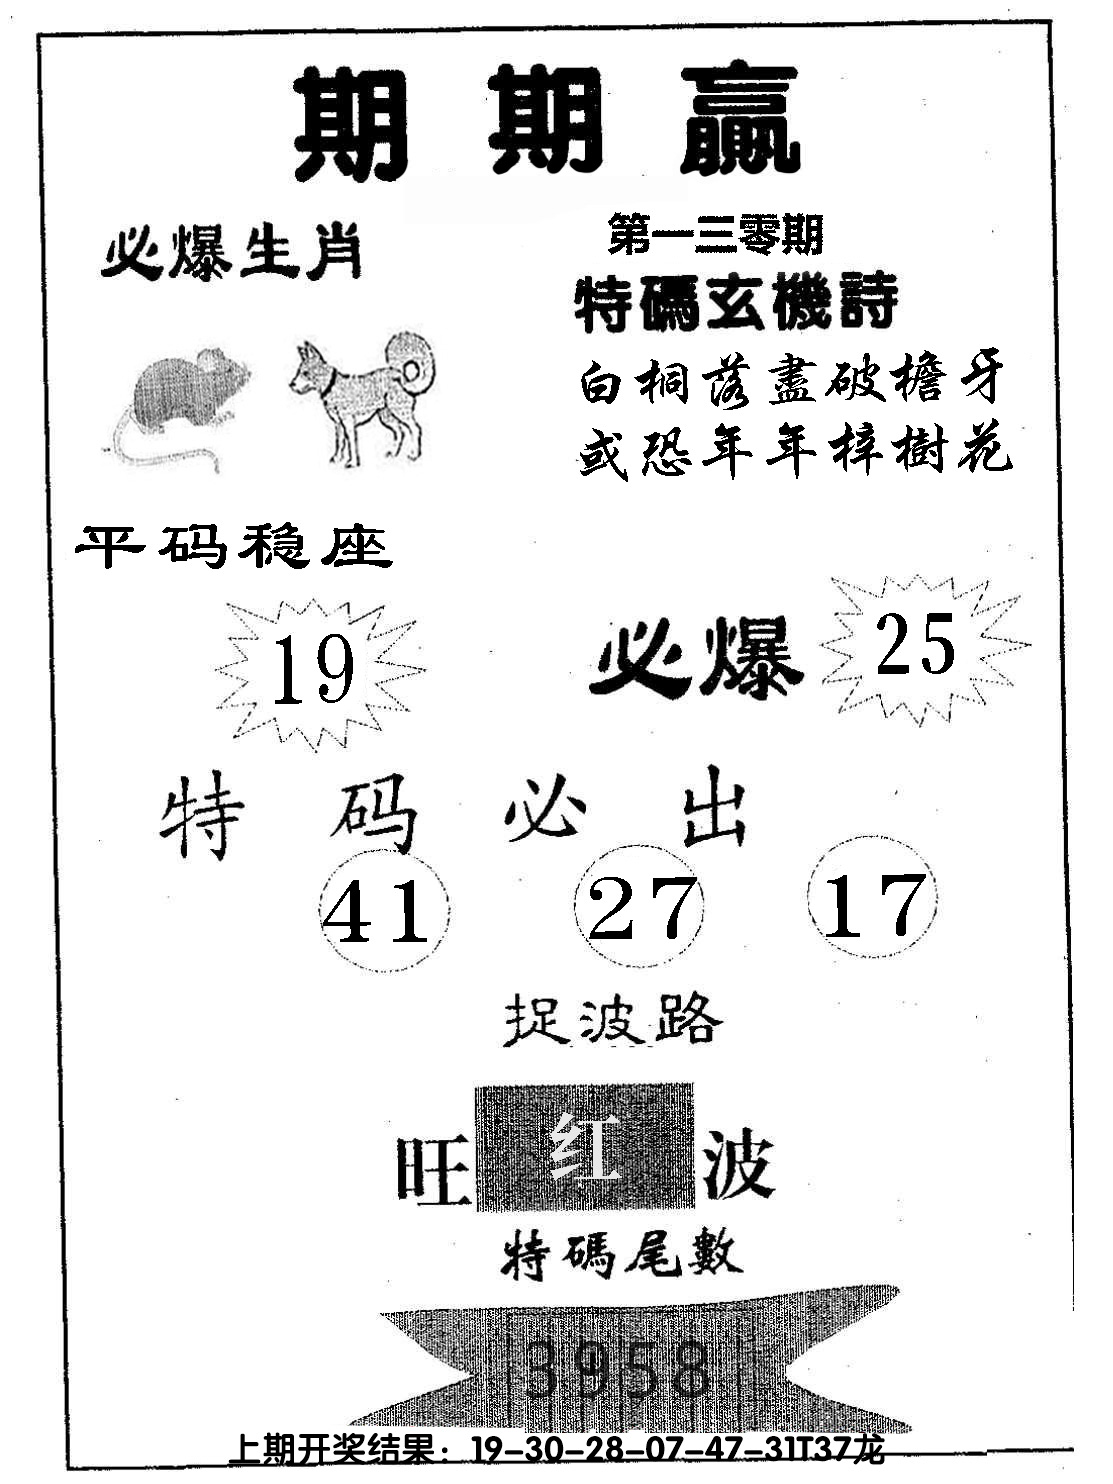 期期赢
必爆生肖
第一三零期
特碼玄機詩
白桐落盡破檐牙
或恐年年梓樹花
平码稳座
19
必爆
25
特码必出
41 27 17
捉波路
旺红波
特碼尾數
3958
上期开奖结果：19-30-28-07-47-31T37龙